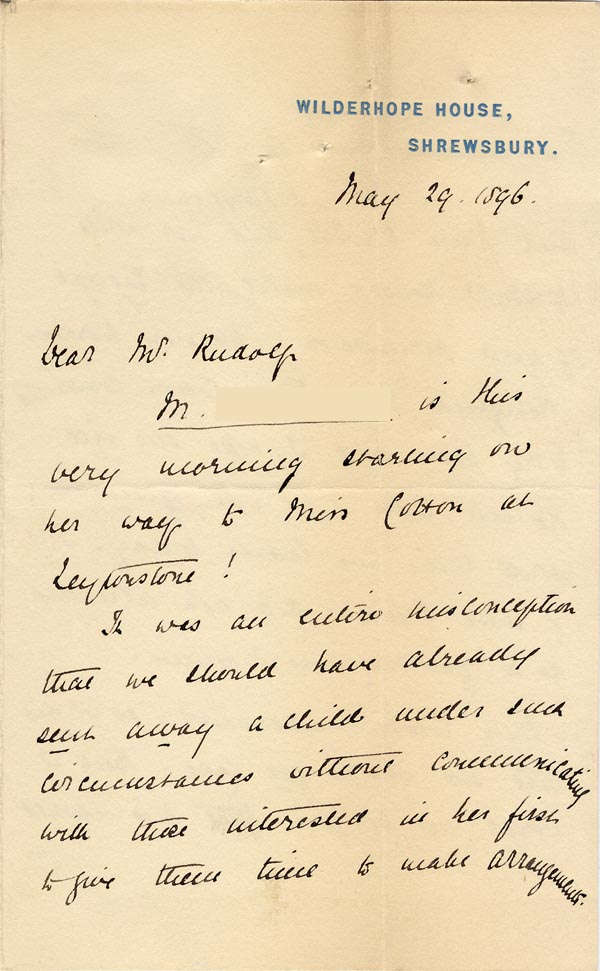 WILDERHOPE HOUSE,
SHREWSBURY.
May 29. 1896.
Dear Mr. Rudolf
M. is this
very morning starting on
her way to Miss Cotton at
Leytonstone!
It was an entire misconception
that we should have already
sent away a child under such
circumstances without communicating
with those interested in her first
to give them time to make arrangements.